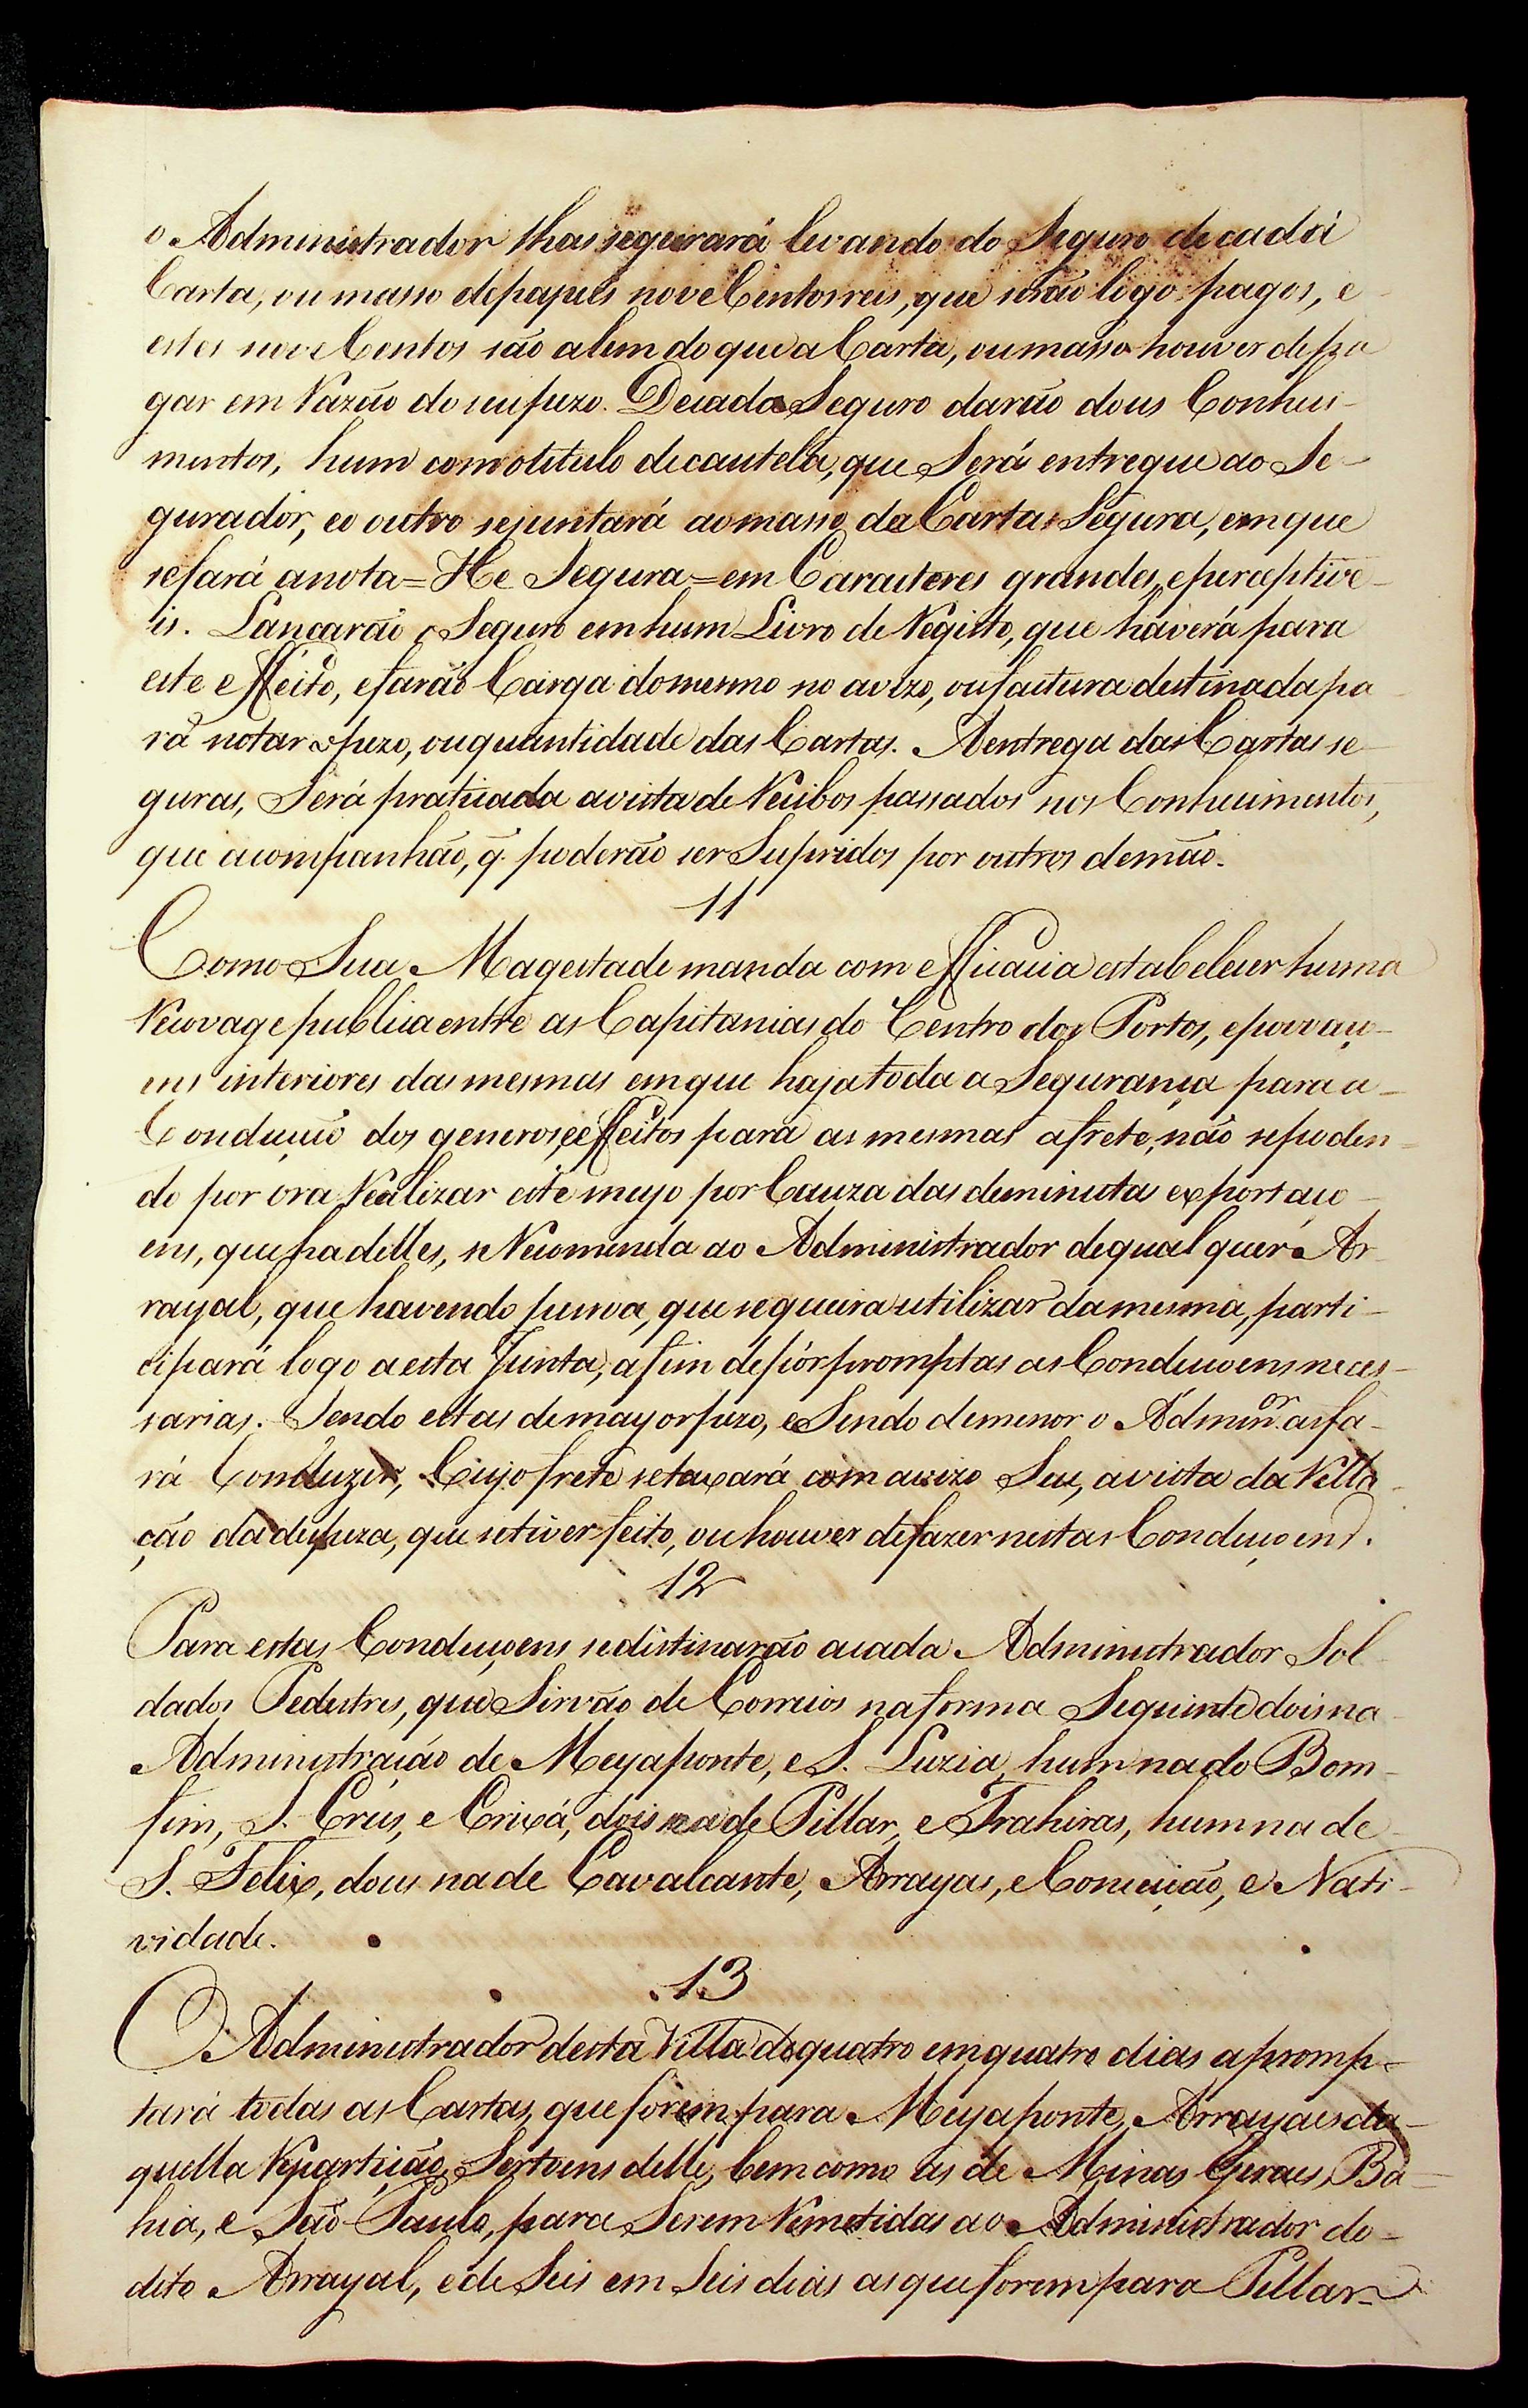 o Administrador lhas segurará levando do Seguro de cada
Carta, ou masso de papeis nove Centos reis, que serão logo pagos, e
estes nove Centos são alem do que a Carta, ou masso houver de pa
gar em Razão do seu pezo. De cada Seguro darão dous Conheci-
mentos, hum com o titulo de cautela, que Será entregue ao Se-
gurador, e o outro se juntará ao masso da Carta Segura, em que
se fará a nota = He Segura = em Caracteres grandes, e perceptive-
is. Lançarão o Seguro em hum Livro de Registo, que haverá para
este effeito, e farão Carga do mesmo no avizo, ou factura destinada pa
ra notar o pezo, ou quantidade das Cartas. A entrega das Cartas se-
guras, Será praticada a vista de Recibos passados nos Conhecimentos,
que acompanhão, q̃. poderão ser Supridos por outros de mão.
11
Como Sua Magestade manda com efficacia estabelecer huma
Recovage publica entre as Capitanias do Centro dos Portos, e povoaço-
ens interiores das mesmas em que haja toda a Segurança para a
Condução dos generos, e effeitos para as mesmas a frete, não se poden-
do por ora Realizar este meyo por Cauza das deminutas exportaço-
ens, que ha delles, se Recomenda ao Administrador de qual quer Ar-
rayal, que havendo pessoa, que se queira utilizar da mesma, parti-
cipará logo a esta Junta, a fim de pôr promptas as Conduçoens neces-
sarias. Sendo estas de mayor pezo, e Sendo de menor o Admin.or as fa-
rá Conduzir, Cujo frete se taxará com avizo Seu, a vista da Rella-
ção da despeza, que se tiver feito, ou houver de fazer nestas Conduçoens.
12
Para estas Conduçoens se distinarão a cada Administrador Sol-
dados Pedestres, que Sirvão de Correios na forma Seguinte dois na
Administração de Meyaponte, e S. Luzia, hum na do Bom-
fim, S. Crus, e Crixá, dois na de Pillar, e Trahiras, hum na de
S. Felix, dous na de Cavalcante, Arrayas, e Conceição, e Nati-
vidade.
13
O Administrador desta Villa de quatro em quatro dias a promp-
tará todas as Cartas, que forem para Meyaponte, Arrayaes da-
quella Repartição, Sertoens delle, bem como as de Minas Geraes, Ba-
hia, e São Paulo, para Serem Remetidas ao Administrador do
dito Arrayal, e de Seis em Seis dias as que forem para Pillar